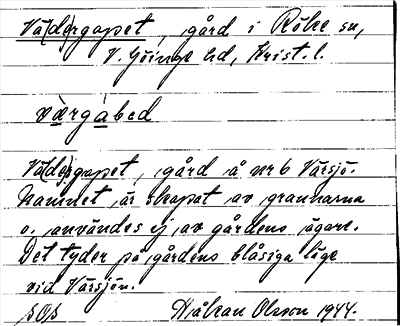 Vä(der)gapet, gård i Röke sn,
V. Göinge hd, Krist. l.
värgàbed
Vä(der)gapet, gård å nr 6 Värsjö.
Namnet är skapat av grannarna
o. användes ej av gårdens ägare.
Det tyder på gårdens blåsiga läge
vid Värsjön.
Olsson 1944.